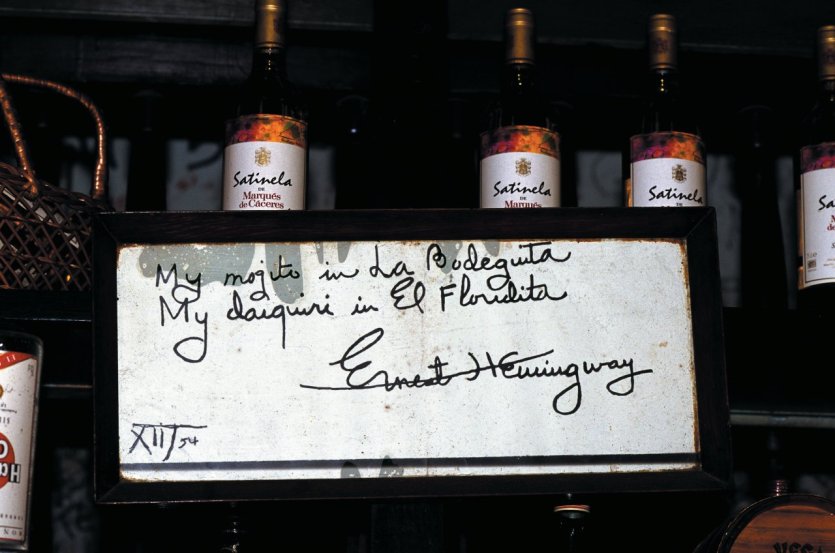 Satinela
DE
Marqués
de Cáceres
Satinela
DE
Marqués
Satinela
DE
My mojito in La Bodeguita
My daiquiri in El Floridita
Ernest Hemingway
XII/54